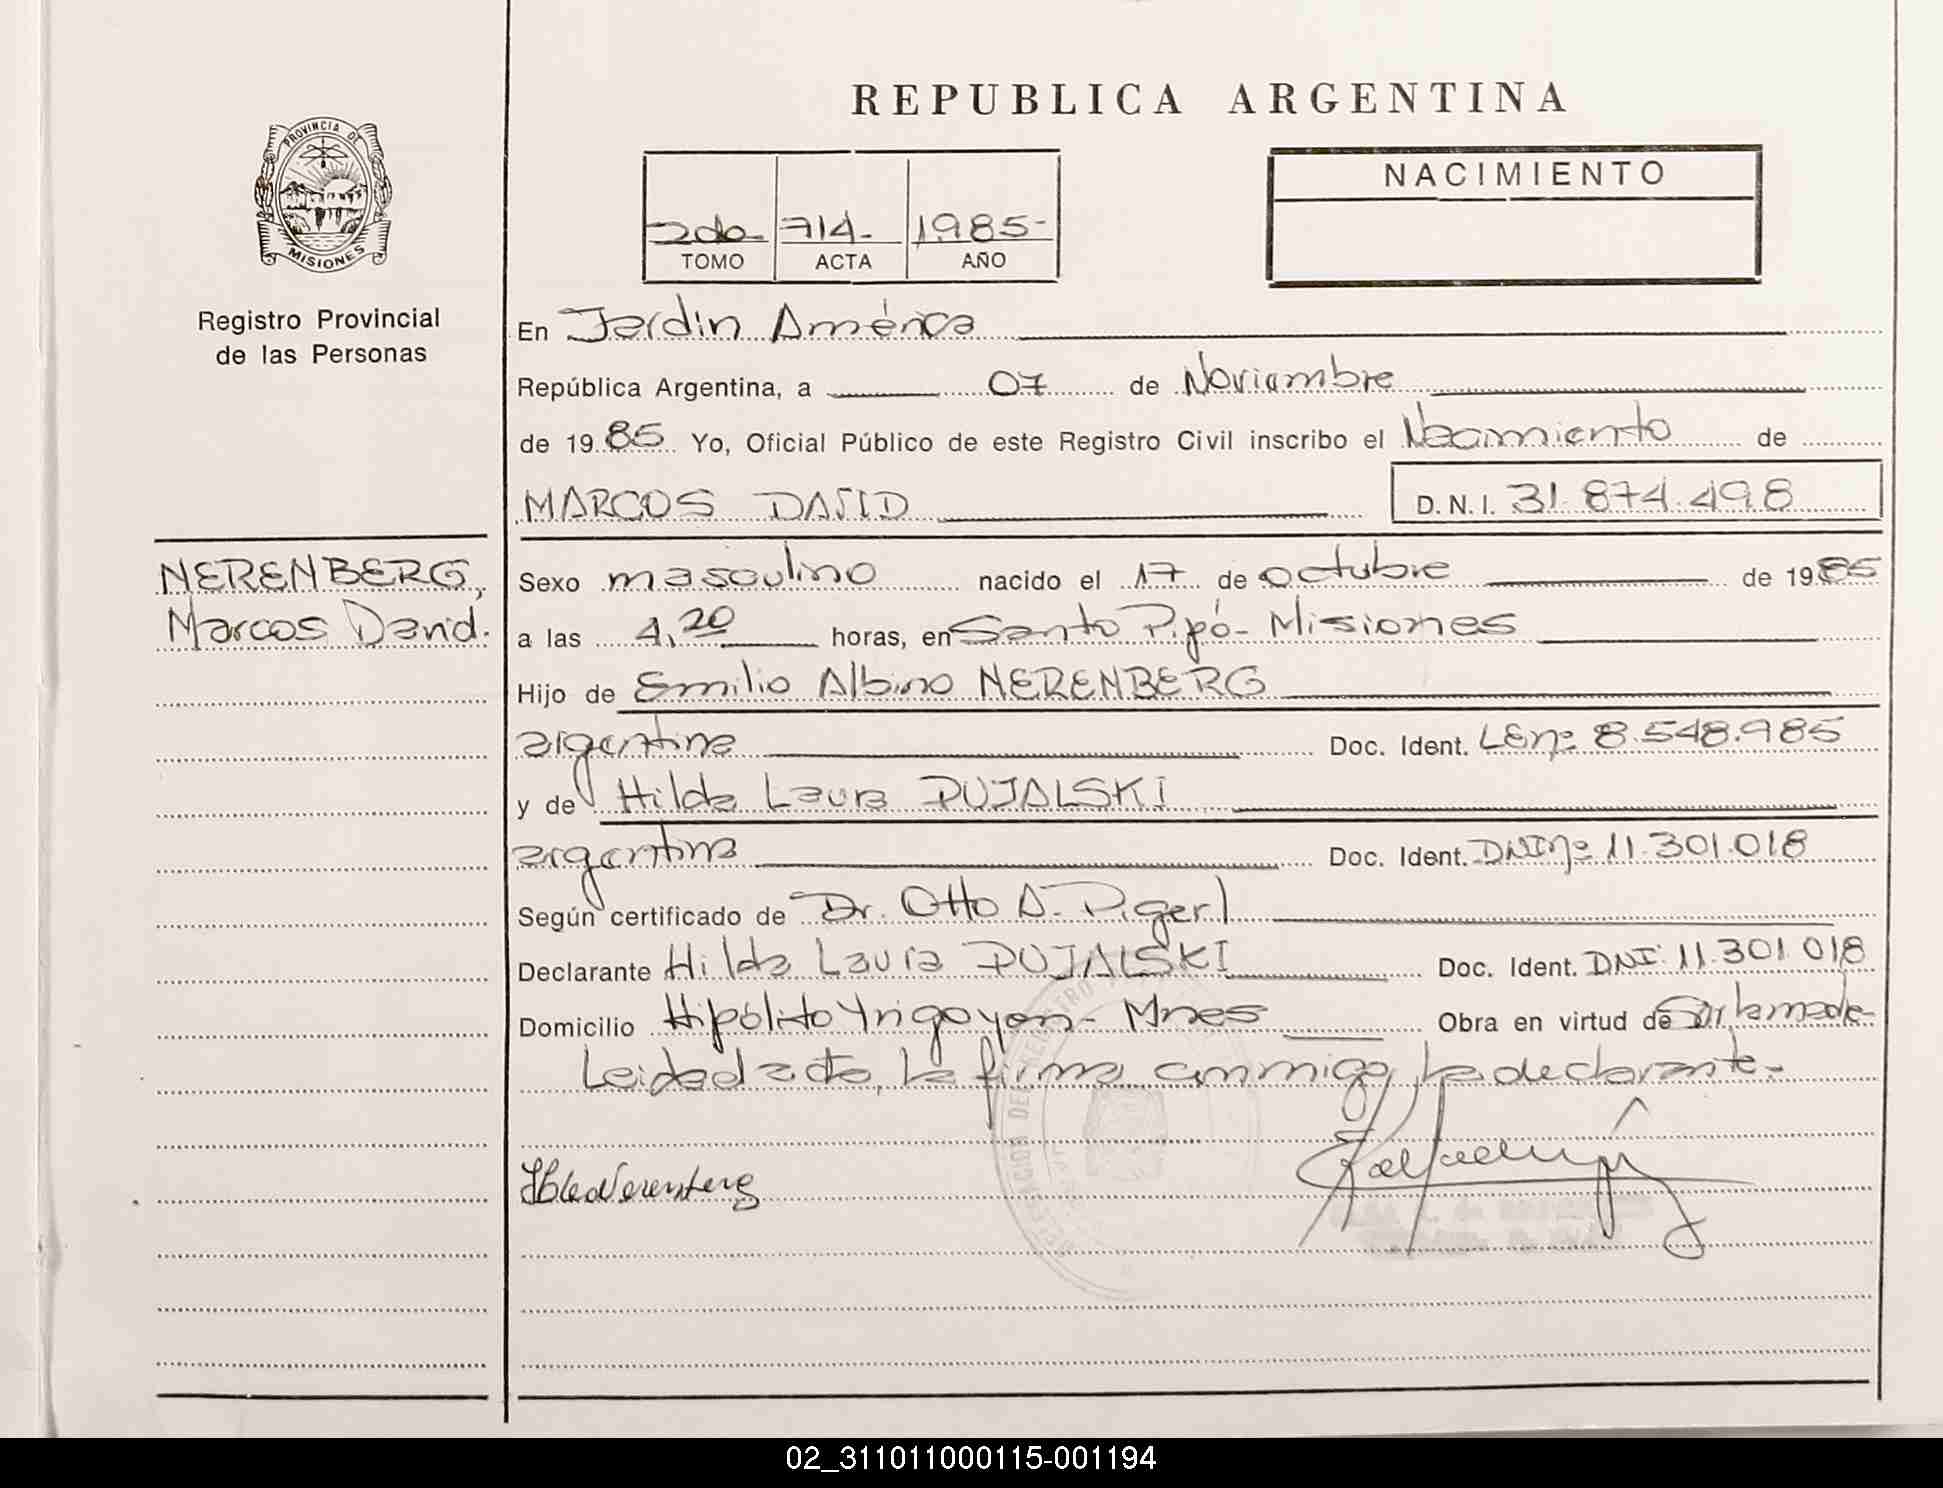 REPUBLICA ARGENTINA
PROVINCIA DE
MISIONES
Registro Provincial
de las Personas
2do- 714- 1985-
TOMO ACTA AÑO
NACIMIENTO
En Jardin América
República Argentina, a 07 de Noviembre
de 1985 Yo, Oficial Público de este Registro Civil inscribo el Nacimiento de
MARCOS DAVID D.N.I. 31.874.498
NERENBERG,
Marcos David.
Sexo masculino nacido el 17 de octubre de 1985
a las 4,20 horas, en Santo Pipó- Misiones
Hijo de Emilio Albino NERENBERG
argentina Doc. Ident. LEnº 8.548.985
y de Hilda Laura PUJALSKI
argentina Doc. Ident. DNInº 11.301.018
Según certificado de Dr. Otto A. Pigerl
Declarante Hilda Laura PUJALSKI Doc. Ident. DNI 11.301.018
Domicilio Hipólito Yrigoyen- Mnes Obra en virtud de
Leida el acta, la firma conmigo, la declarante.-
02_311011000115-001194